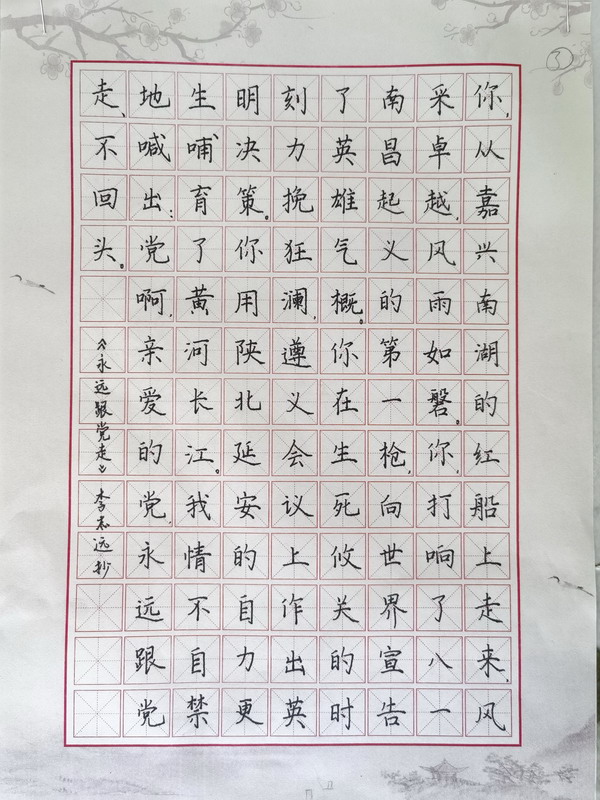 ③
你,从嘉兴南湖的红船上走来,风
采卓越,风雨如磐。你,打响了八一
南昌起义的第一枪,向世界宣告
了英雄气概。你在生死攸关的时
刻力挽狂澜,遵义会议上作出英
明决策。你用陕北延安的自力更
生哺育了黄河长江。我情不自禁
地喊出:党啊,亲爱的党,永远跟党
走,不回头。
《永远跟党走》 李志远抄